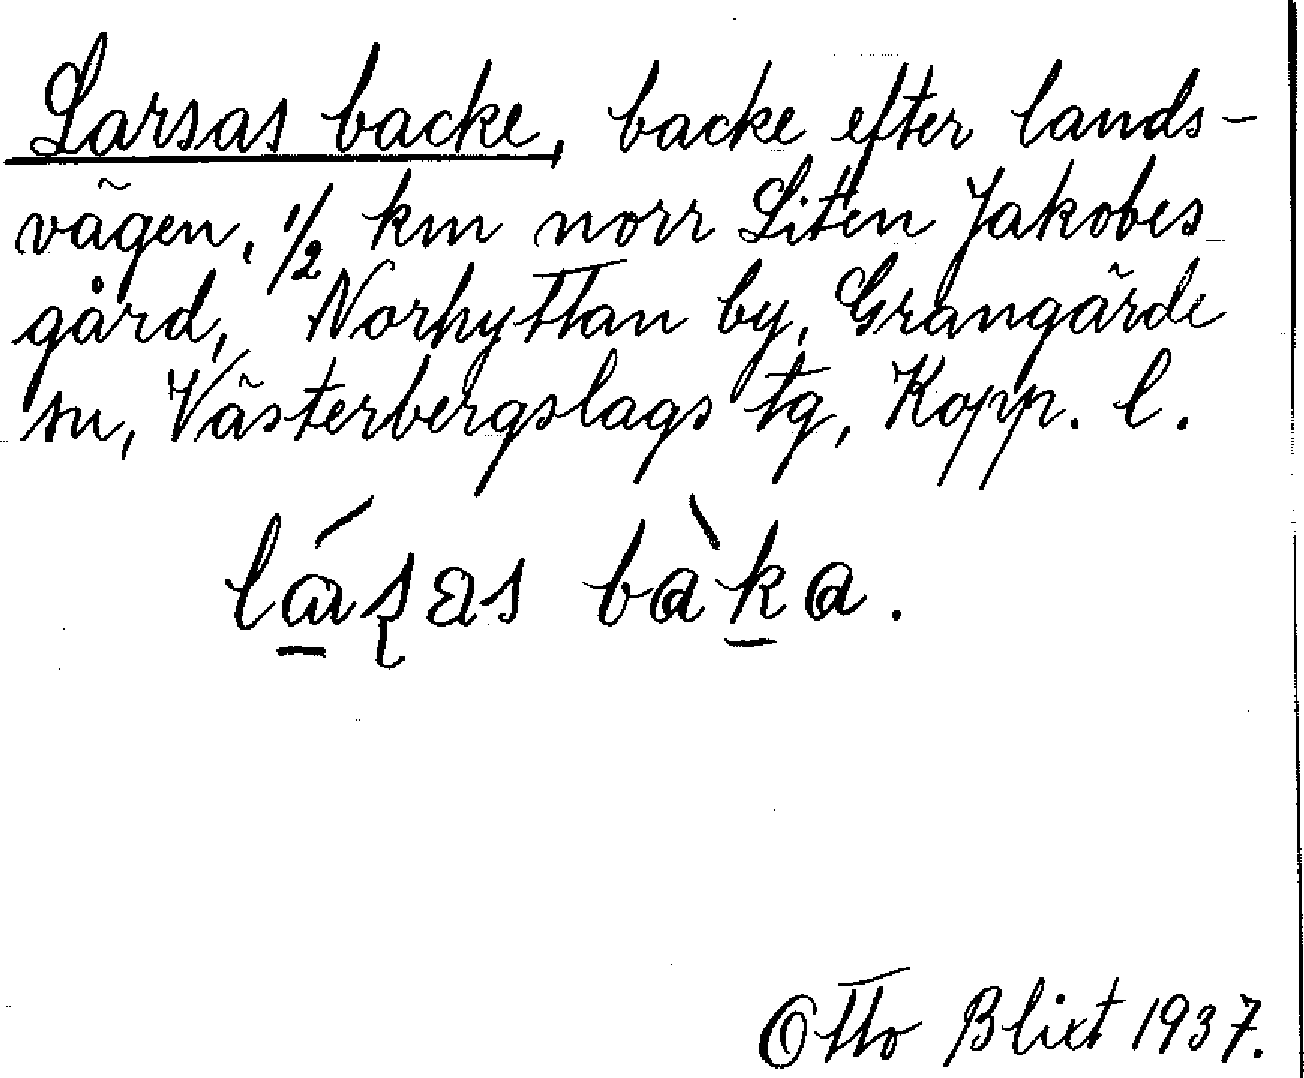 Larsas backe, backe efter lands-
vägen, 1/2 km norr Liten Jakobes
gård, Norhyttan by, Grangärde
sn, Västerbergslags tg, Kopp. l.
lásas bàka.
Otto Blixt 1937.